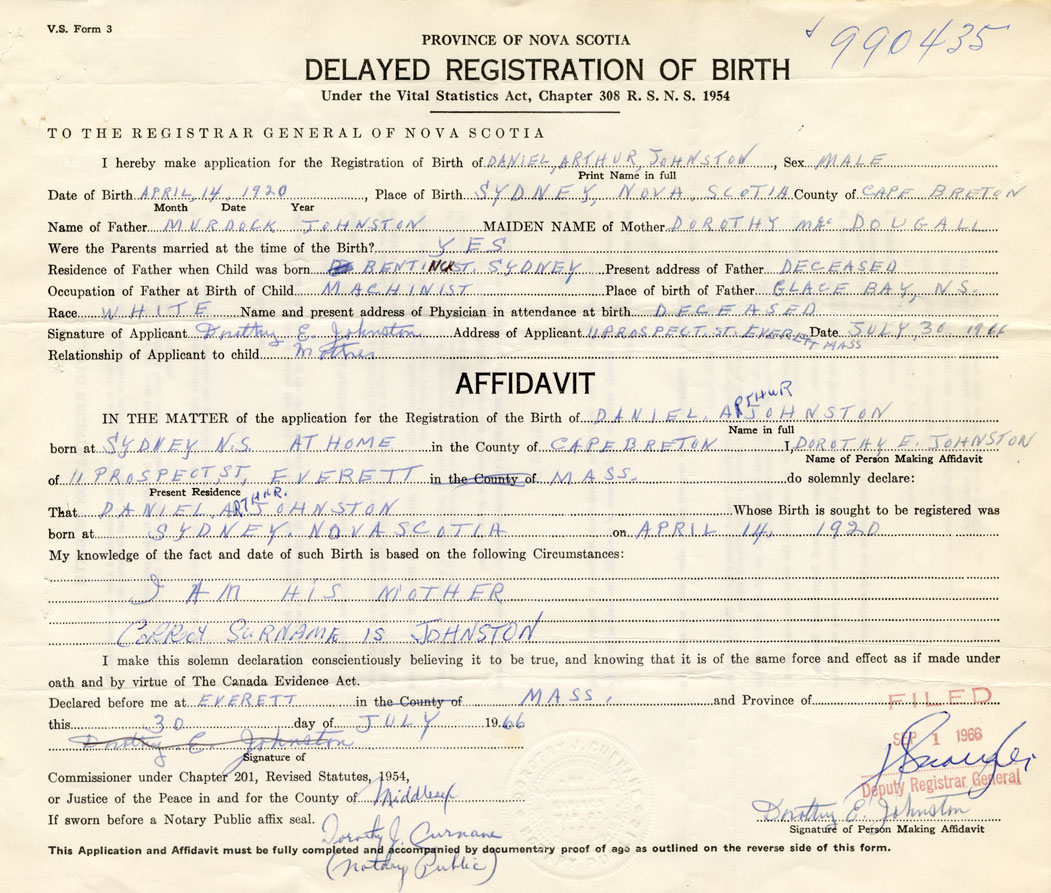 V.S. Form 3
990435
PROVINCE OF NOVA SCOTIA
DELAYED REGISTRATION OF BIRTH
Under the Vital Statistics Act, Chapter 308 R. S. N. S. 1954
TO THE REGISTRAR GENERAL OF NOVA SCOTIA
I hereby make application for the Registration of Birth of DANIEL, ARTHUR, JOHNSTON, Sex MALE
Print Name in full
Date of Birth APRIL, 14, 1920, Place of Birth SYDNEY, NOVA SCOTIA County of CAPE BRETON
Month Date Year
Name of Father MURDOCK JOHNSTON MAIDEN NAME of Mother DOROTHY MacDOUGALL
Were the Parents married at the time of the Birth? YES
Residence of Father when Child was born BENTINCK ST. SYDNEY Present address of Father DECEASED
Occupation of Father at Birth of Child MACHINIST Place of birth of Father GLACE BAY, N.S.
Race WHITE Name and present address of Physician in attendance at birth DECEASED
Signature of Applicant Dorothy E. Johnston Address of Applicant 11 PROSPECT. ST. EVERETT MASS Date JULY 30 1966
Relationship of Applicant to child Mother
AFFIDAVIT
IN THE MATTER of the application for the Registration of the Birth of DANIEL. ARTHUR JOHNSTON
Name in full
born at SYDNEY N.S. AT HOME in the County of CAPE BRETON I, DOROTHY E. JOHNSTON
Name of Person Making Affidavit
of 11 PROSPECT, ST, EVERETT in the County of MASS. do solemnly declare:
Present Residence
That DANIEL, ARTHUR. JOHNSTON Whose Birth is sought to be registered was
born at SYDNEY. NOVA SCOTIA on APRIL 14, 1920
My knowledge of the fact and date of such Birth is based on the following Circumstances:
I AM HIS MOTHER
SURNAME IS JOHNSTON
I make this solemn declaration conscientiously believing it to be true, and knowing that it is of the same force and effect as if made under
oath and by virtue of The Canada Evidence Act.
Declared before me at EVERETT in the County of MASS. and Province of
FILED
this 30 day of JULY 1966
SEP 1 1966
Dorothy E Johnston
Signature of
Deputy Registrar General
Commissioner under Chapter 201, Revised Statutes, 1954,
or Justice of the Peace in and for the County of Middlesex
Dorothy E. Johnston
Signature of Person Making Affidavit
If sworn before a Notary Public affix seal.
Dorothy J. Curnane
This Application and Affidavit must be fully completed and accompanied by documentary proof of age as outlined on the reverse side of this form.
(Notary Public)